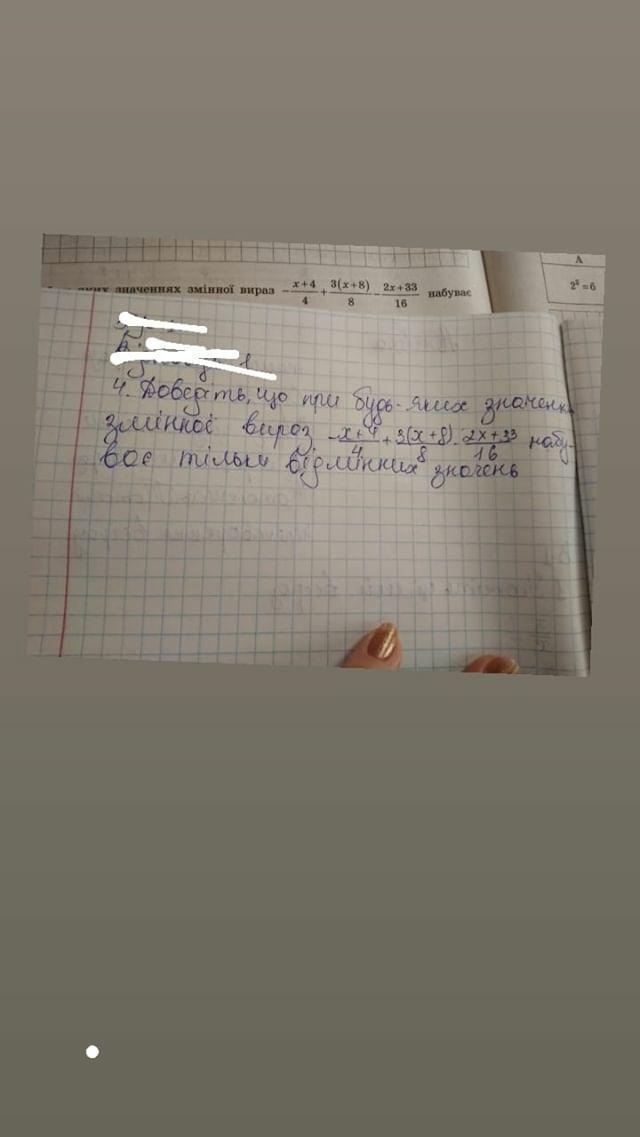 А
яких значеннях змінної вираз -x+4/4 + 3(x+8)/8 - 2x+33/16 набуває
2⁵=6
4. Доведіть, що при будь-яких значень
змінної вираз -x+4/4 + 3(x+8)/8 - 2x+33/16 набу-
ває тільки відмінних значень